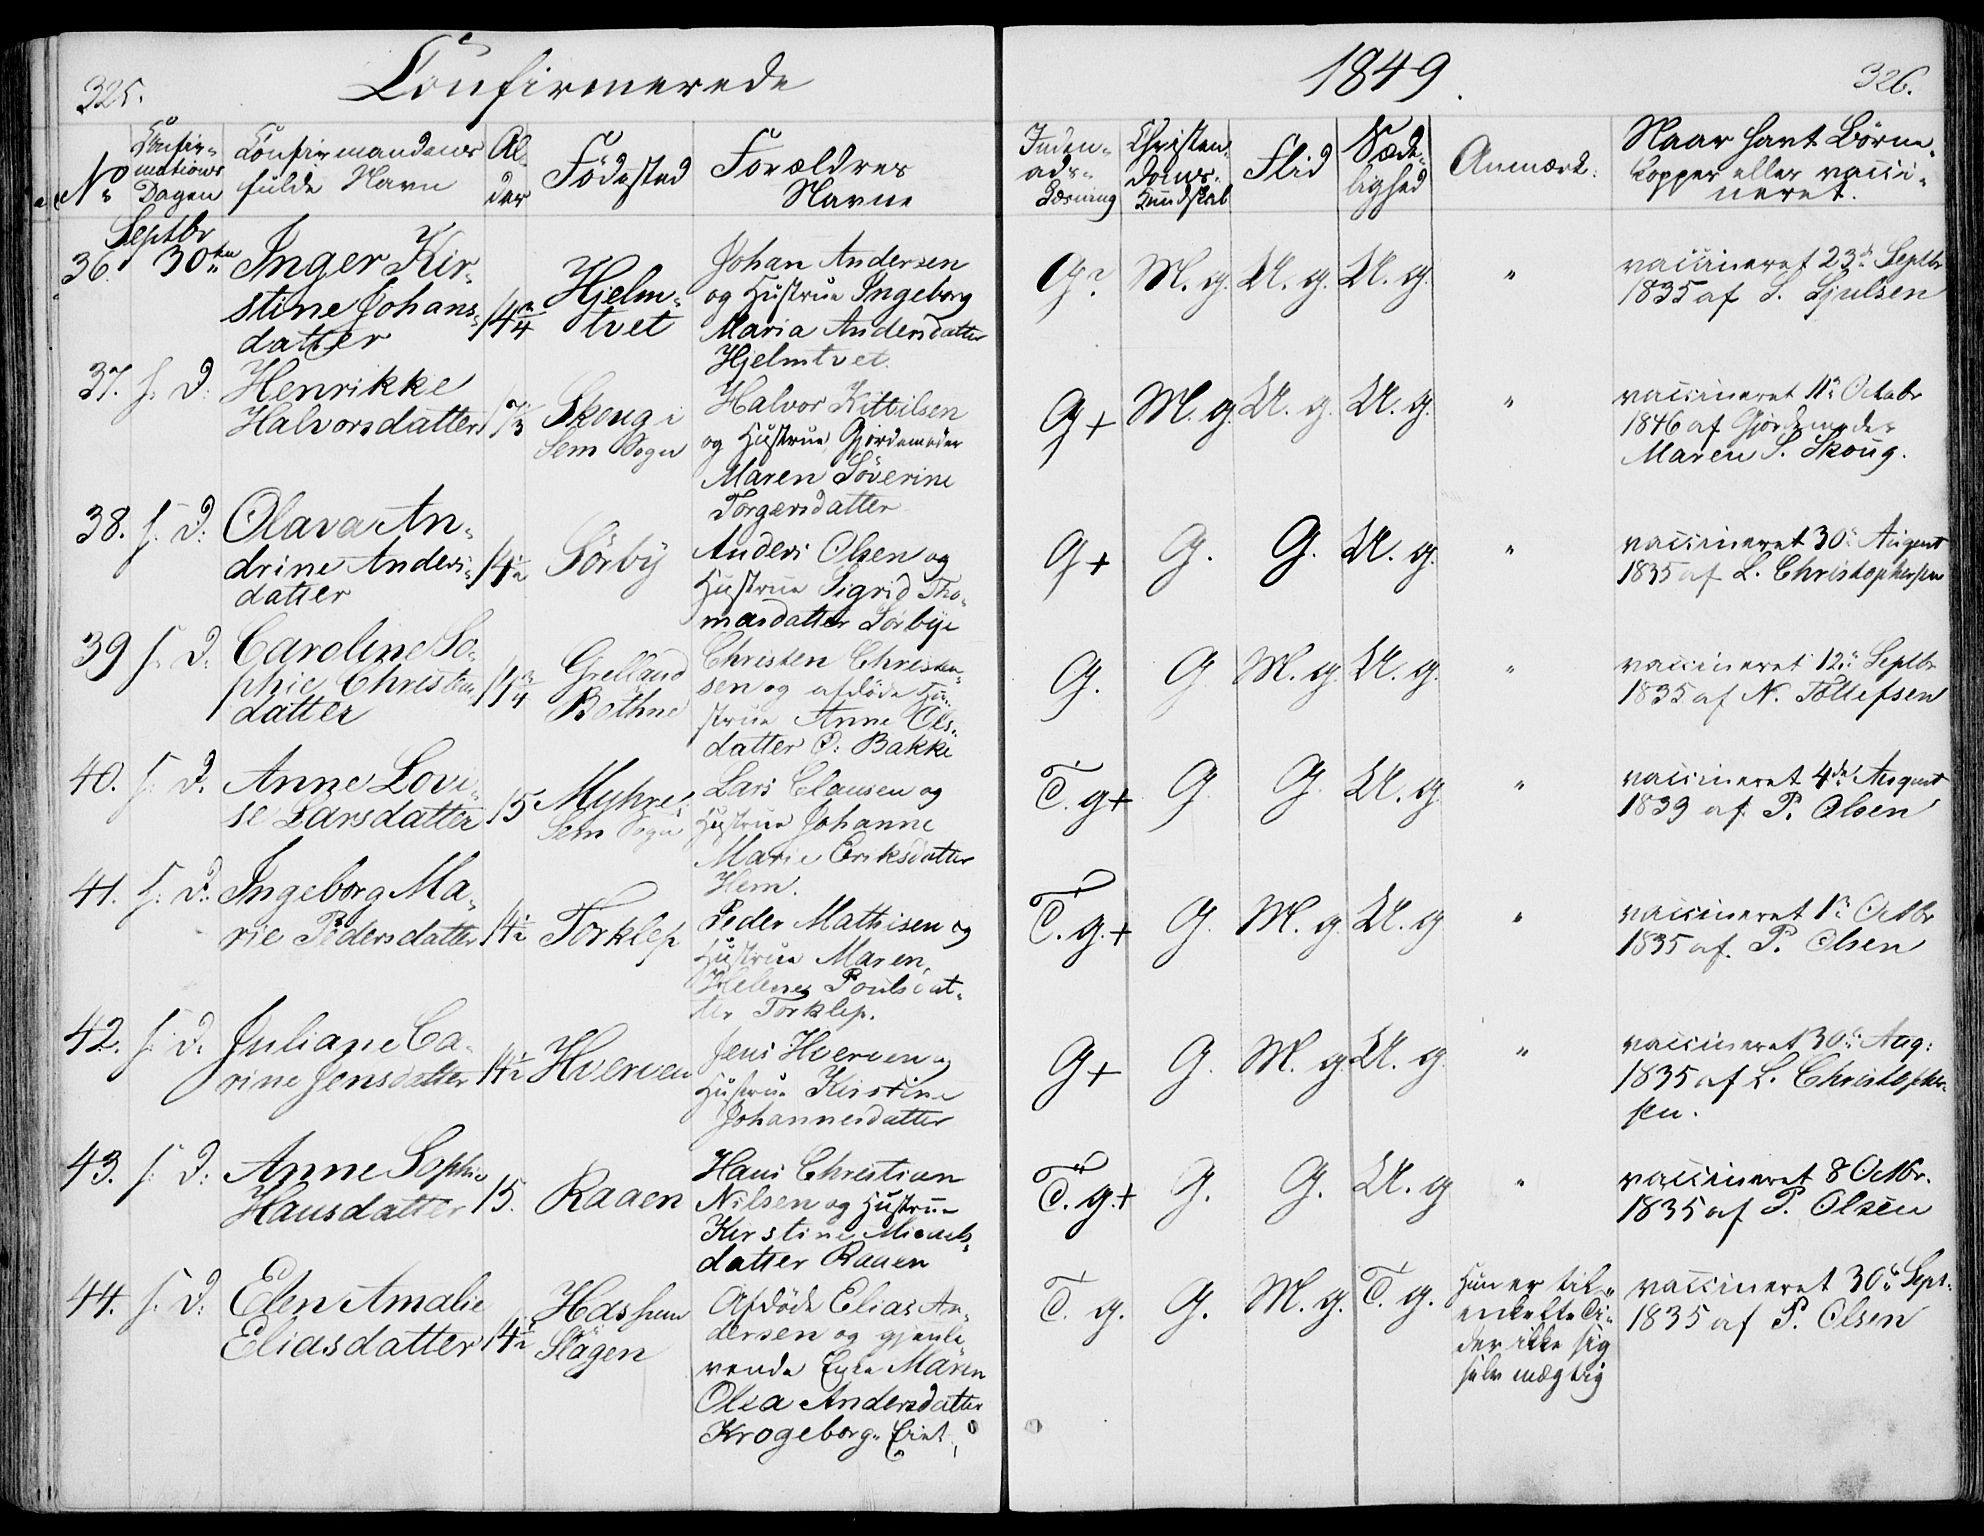 325.
Confirmerede
1849.
326.
No
Confir-
mations
Dagen
Confirmandenes
fulde Navn
Al-
der
Födested
Forældres
Navne
Inden-
ads-
Læsning
Christen-
doms-
Kundskab
Flid
Sæde-
lighed
Anmærk:
Naar havt Börne-
kopper eller vacci-
neret.
Septbr
36. 30te Inger Kir-
stine Johans-
datter
14 3/4
Hjelm-
tvet
Johan Andersen
og Hustrue Ingeborg
Maria Andersdatter
Hjelmtvet.
G? M. g. U. g. U. g. "
vaccineret 23de Septbr
1835 af S. Sjulsen
37. s. D. Henrikke
Halvorsdatter
Skoug i
Sem Sogn
Halvor Kittilsen
og Hustrue, Gjordemoder
Maren Söverine
Torgersdatter
G+ M. g. U. g. U. g. "
vaccineret 11te Octobr
1846 af Gjordemoder
Maren S. Skoug.
38. s. D: Olava An-
drine Anders-
datter
14 1/2
Sörby
Anders Olsen og
Hustrue Sigrid Tho-
masdatter Sörbye
G+ G. G. U. g. "
vaccineret 30te August
1835 af L. Christophersen
39 s. D: Caroline So-
phie Christens
datter
14 3/4
Grelland
Böthne
Christen Christen-
sen og afdöde Hu-
strue Anne Ols-
datter O: Bakke
G. G M. g. U. g. "
vaccineret 12te Septbr
1835 af N. Tollefsen
40. s. D. Anne Lovi-
se Larsdatter
15
Myhre i
Sem Sogn
Lars Clausen og
Hustrue Johanne
Marie Eriksdatter
Hem.
T. g+ G G. U. g "
vaccineret 4de August
1839 af P. Olsen
41. s. D: Ingeborg Ma-
rie Pedersdatter
14 1/2
Torklep
Peder Mathisen og
Hustrue Maren
Helene Poulsdat-
ter Torklep.
T. g.+ G. M. g. U. g "
vaccineret 1te Octbr
1835 af P. Olsen
42. s. D. Juliane Ca-
rine Jensdatter
14 1/2
Hverven
Jens Hverven og
Hustrue Kirstine
Johannesdatter
G+ G. M. g U. g. "
vaccineret 30te Aug:
1835 af L. Christopher-
sen.
43. s. D: Anne Sophie
Hansdatter
15.
Raaen
Hans Christian
Nilsen og Hustrue
Kirstine Micaels-
datter Raaen
T. g.+ G. G. U. g "
vaccineret 8 Octbr.
1835 af P. Olsen
44. s. D: Elen Amalie
Eliasdatter
14 1/2
Hassum
Slagen
Afdöde Elias An-
dersen og gjenle-
vende Enke Maren
Olea Andersdatter
Krogeborg-Eiet
T. g. G. M. g. T. g.
Hun er til
enkelte Ti-
der ikke sig
selv mægtig
vaccineret 30te Sept:
1835 af P. Olsen